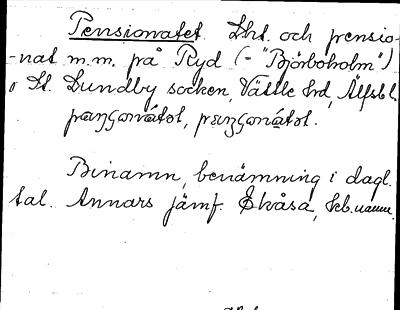 Pensionatet. Lht. och pensio-
-nat m.m. på Ryd (- "Björboholm")
i St. Lundby socken, Vättle hd, Älfsbl.
Binamn, benämning i dagl.
tal. Annars jämf. Ekåsa, beb.namn.